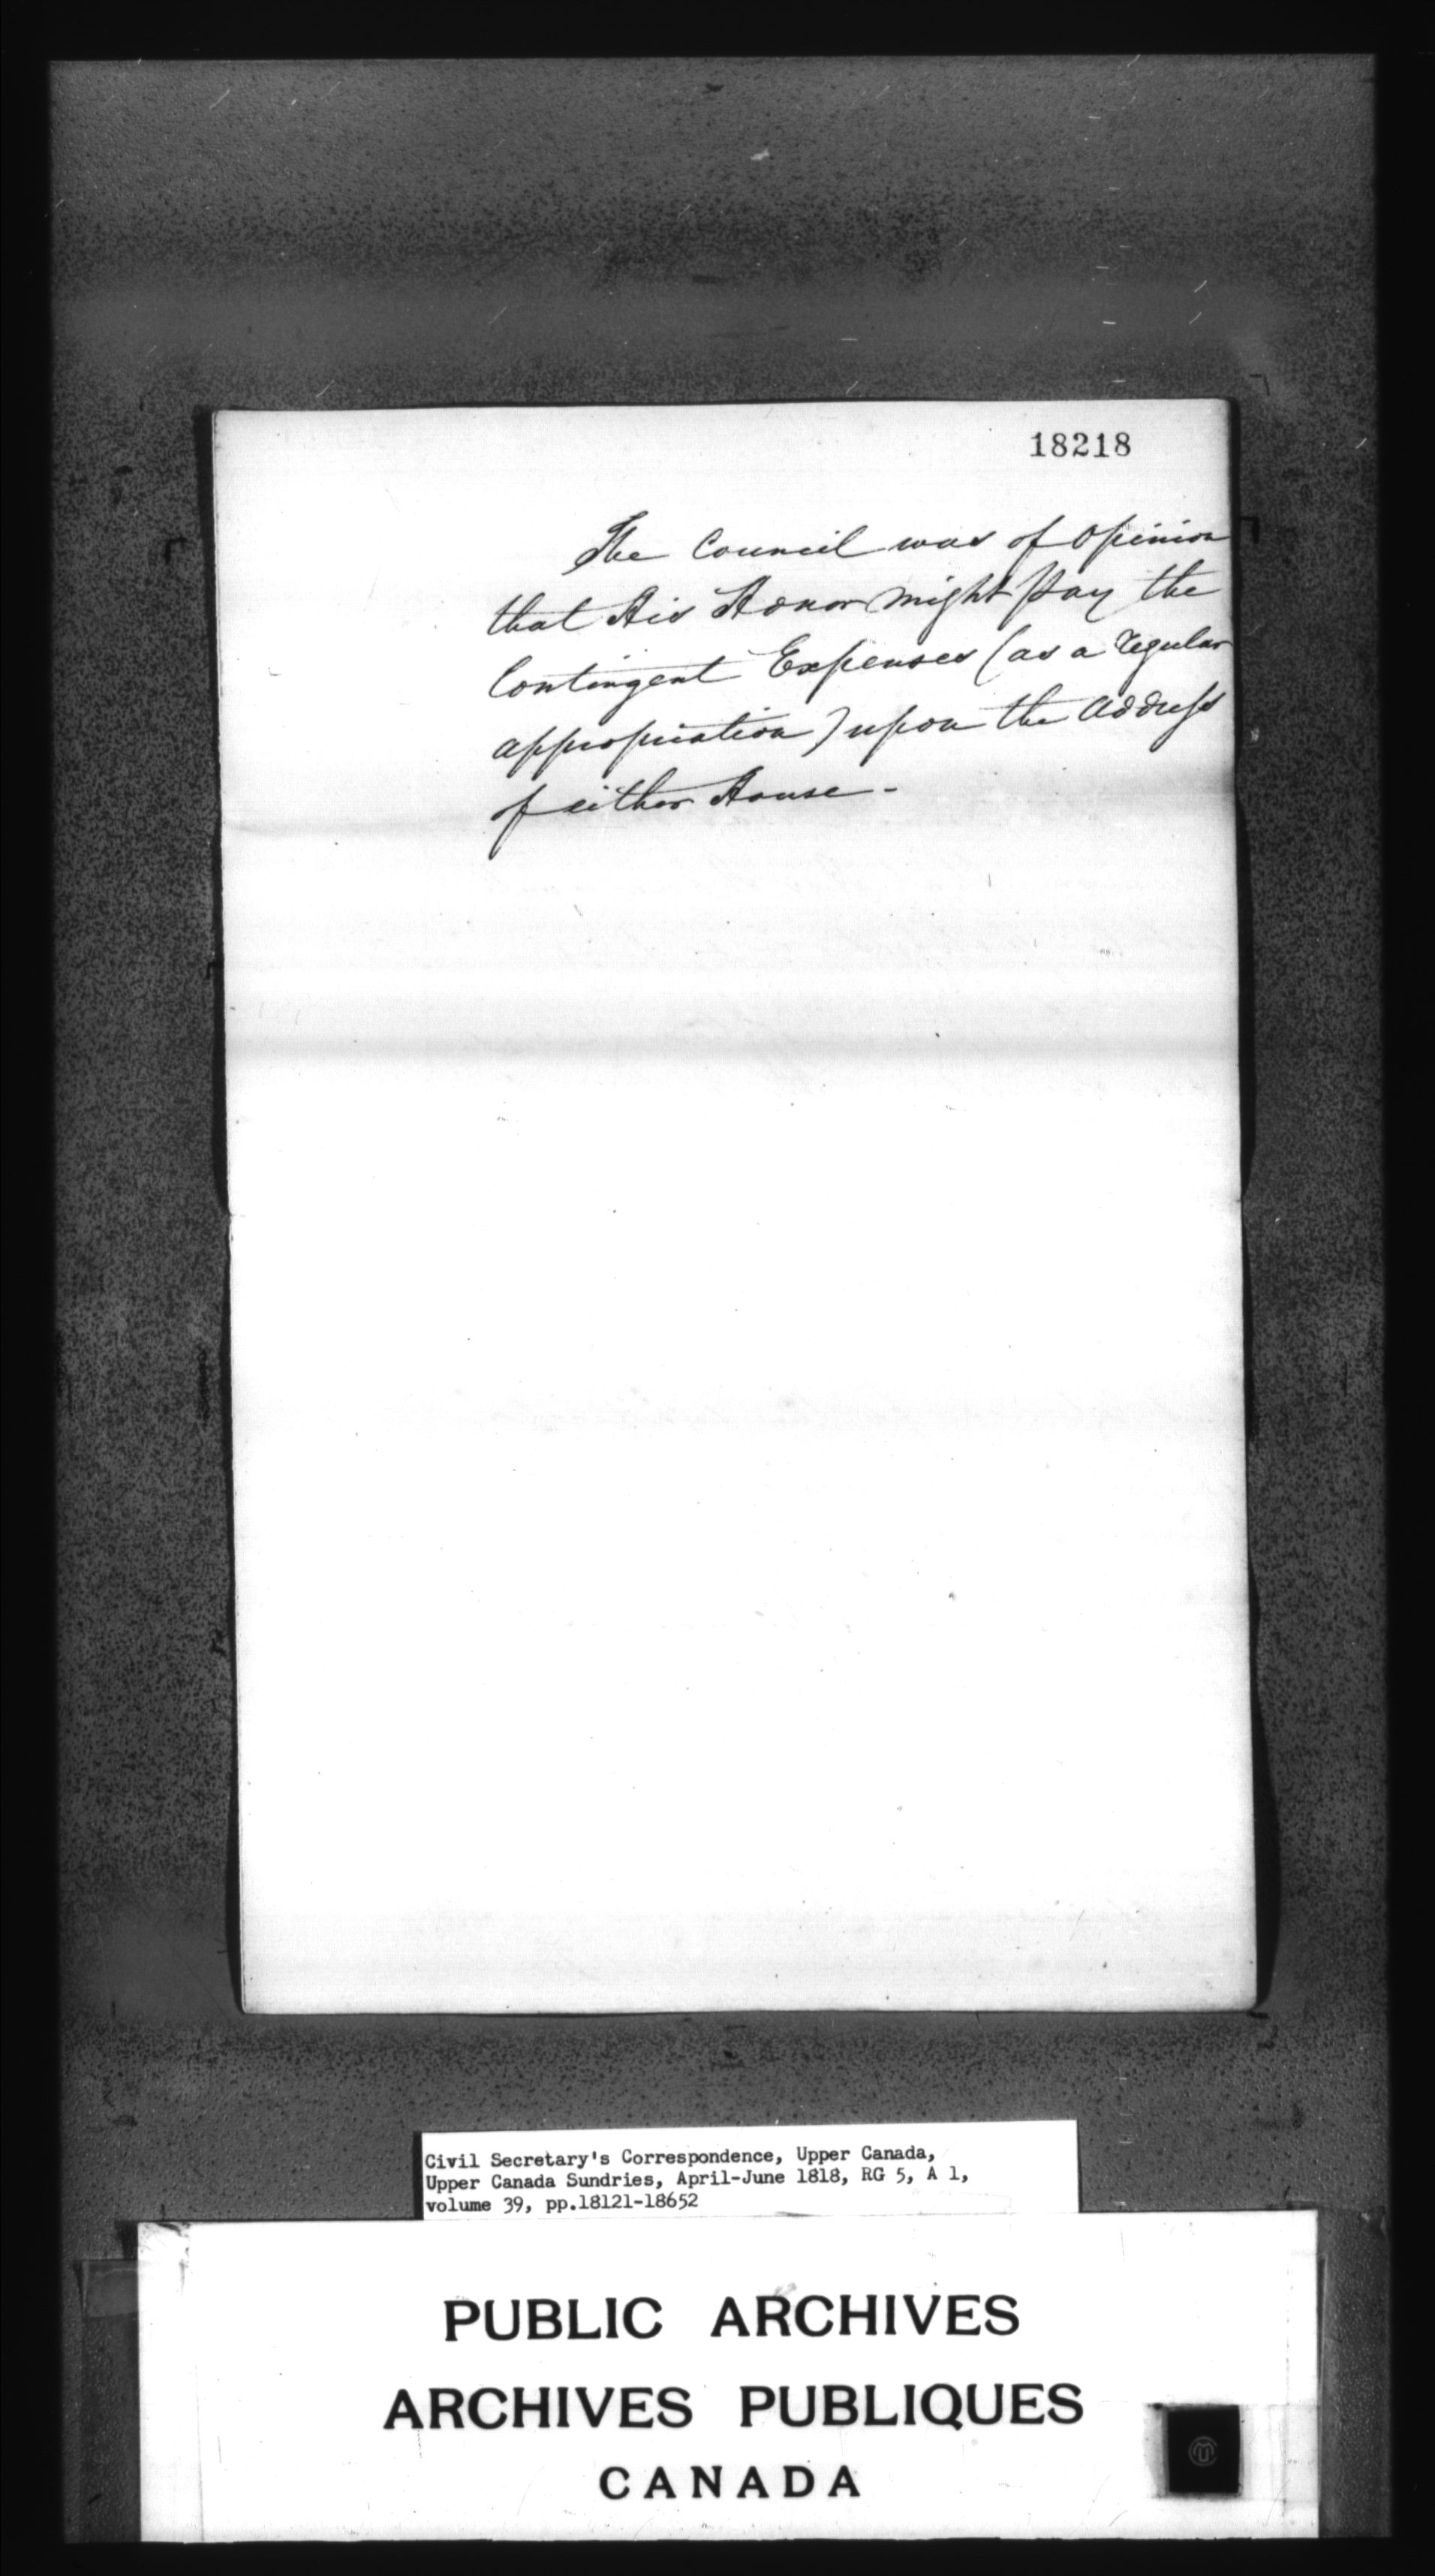 18218
The Council was of Opinion
that His Honor might pay the
Contingent Expenses (as a regular
appropriation) upon the address
of either House -
Civil Secretary's Correspondence, Upper Canada,
Upper Canada Sundries, April-June 1818, RG 5, A 1,
volume 39, pp.18121-18652
PUBLIC ARCHIVES
ARCHIVES PUBLIQUES
CANADA